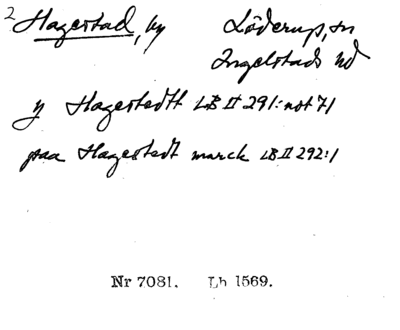 2 Hagestad, by Löderup, sn
Ingelstads hd
y Hagestedtt LB II 291: not 71
paa Hagestedt marck LB II 292:1
Nr 7081. Lh 1569.